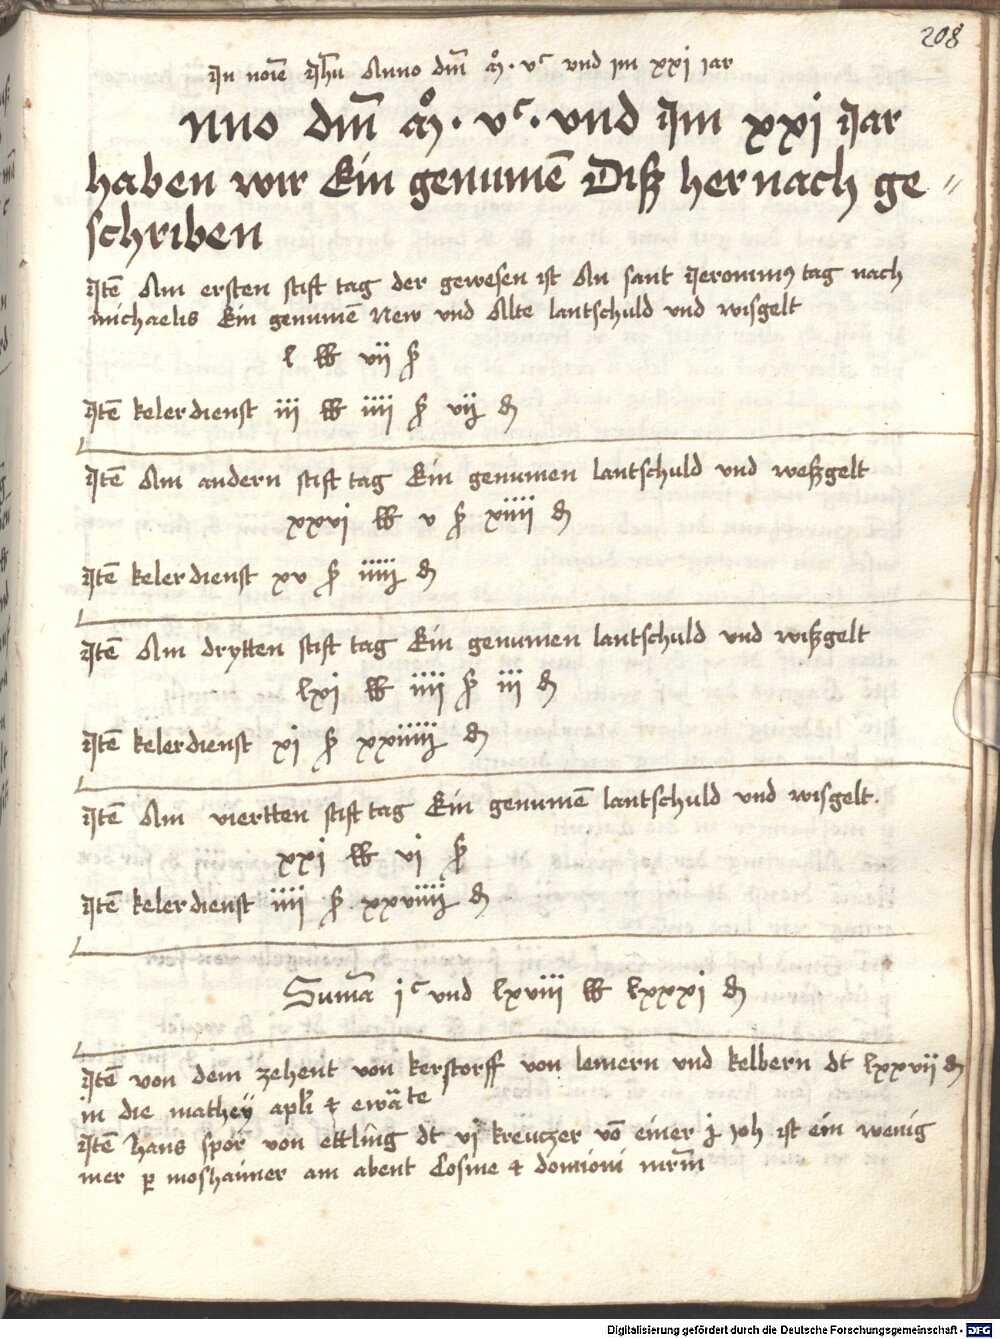 208
In noı͞e Ih͞u Anno dn͞i M°. vᶜ und im xxj jar
nno dn͞i M°. vᶜ. und Im xxj Jar
haben wir Ein genumē Diß hernach ge〃
schriben
Itē Am ersten stift tag der gewesen ist An sant Ieronimꝰ tag nach
michaelis Ein genumē New und Alte lantschuld und wisgelt
l ℔ vij ß
Itē kelerdienst iij ℔ iiij ß vij ₰
Itē Am andern stift tag Ein genumen lantschuld und weßgelt
xxvj ℔ v ß xiiij ₰
Itē kelerdienst xv ß ₰
Itē Am drytten stift tag Ein genumen lantschuld und wißgelt
lxj ℔ iiij ß iij ₰
Itē kelerdienst xj ß ₰
Itē Am viertten stift tag Ein genumē lantschuld und wisgelt.
xxj ℔ vj ß
Itē kelerdienst iiij ß ₰
Sum̄a jᶜ und lxviij ℔ lxxxj ₰
Itē von dem zehent von kerstorff von lemern und kelbern dt lxxvij ₰
in die matheÿ apl̄i & ewā te
Itē hans spör von ettling dt vj kreuczer vō einer j ist ein wenig
mer ꝑ moshaimer am abent Cosme & domioni mr̄m
Digitalisierung gefördert durch die Deutsche Forschungsgemeinschaft - DFG